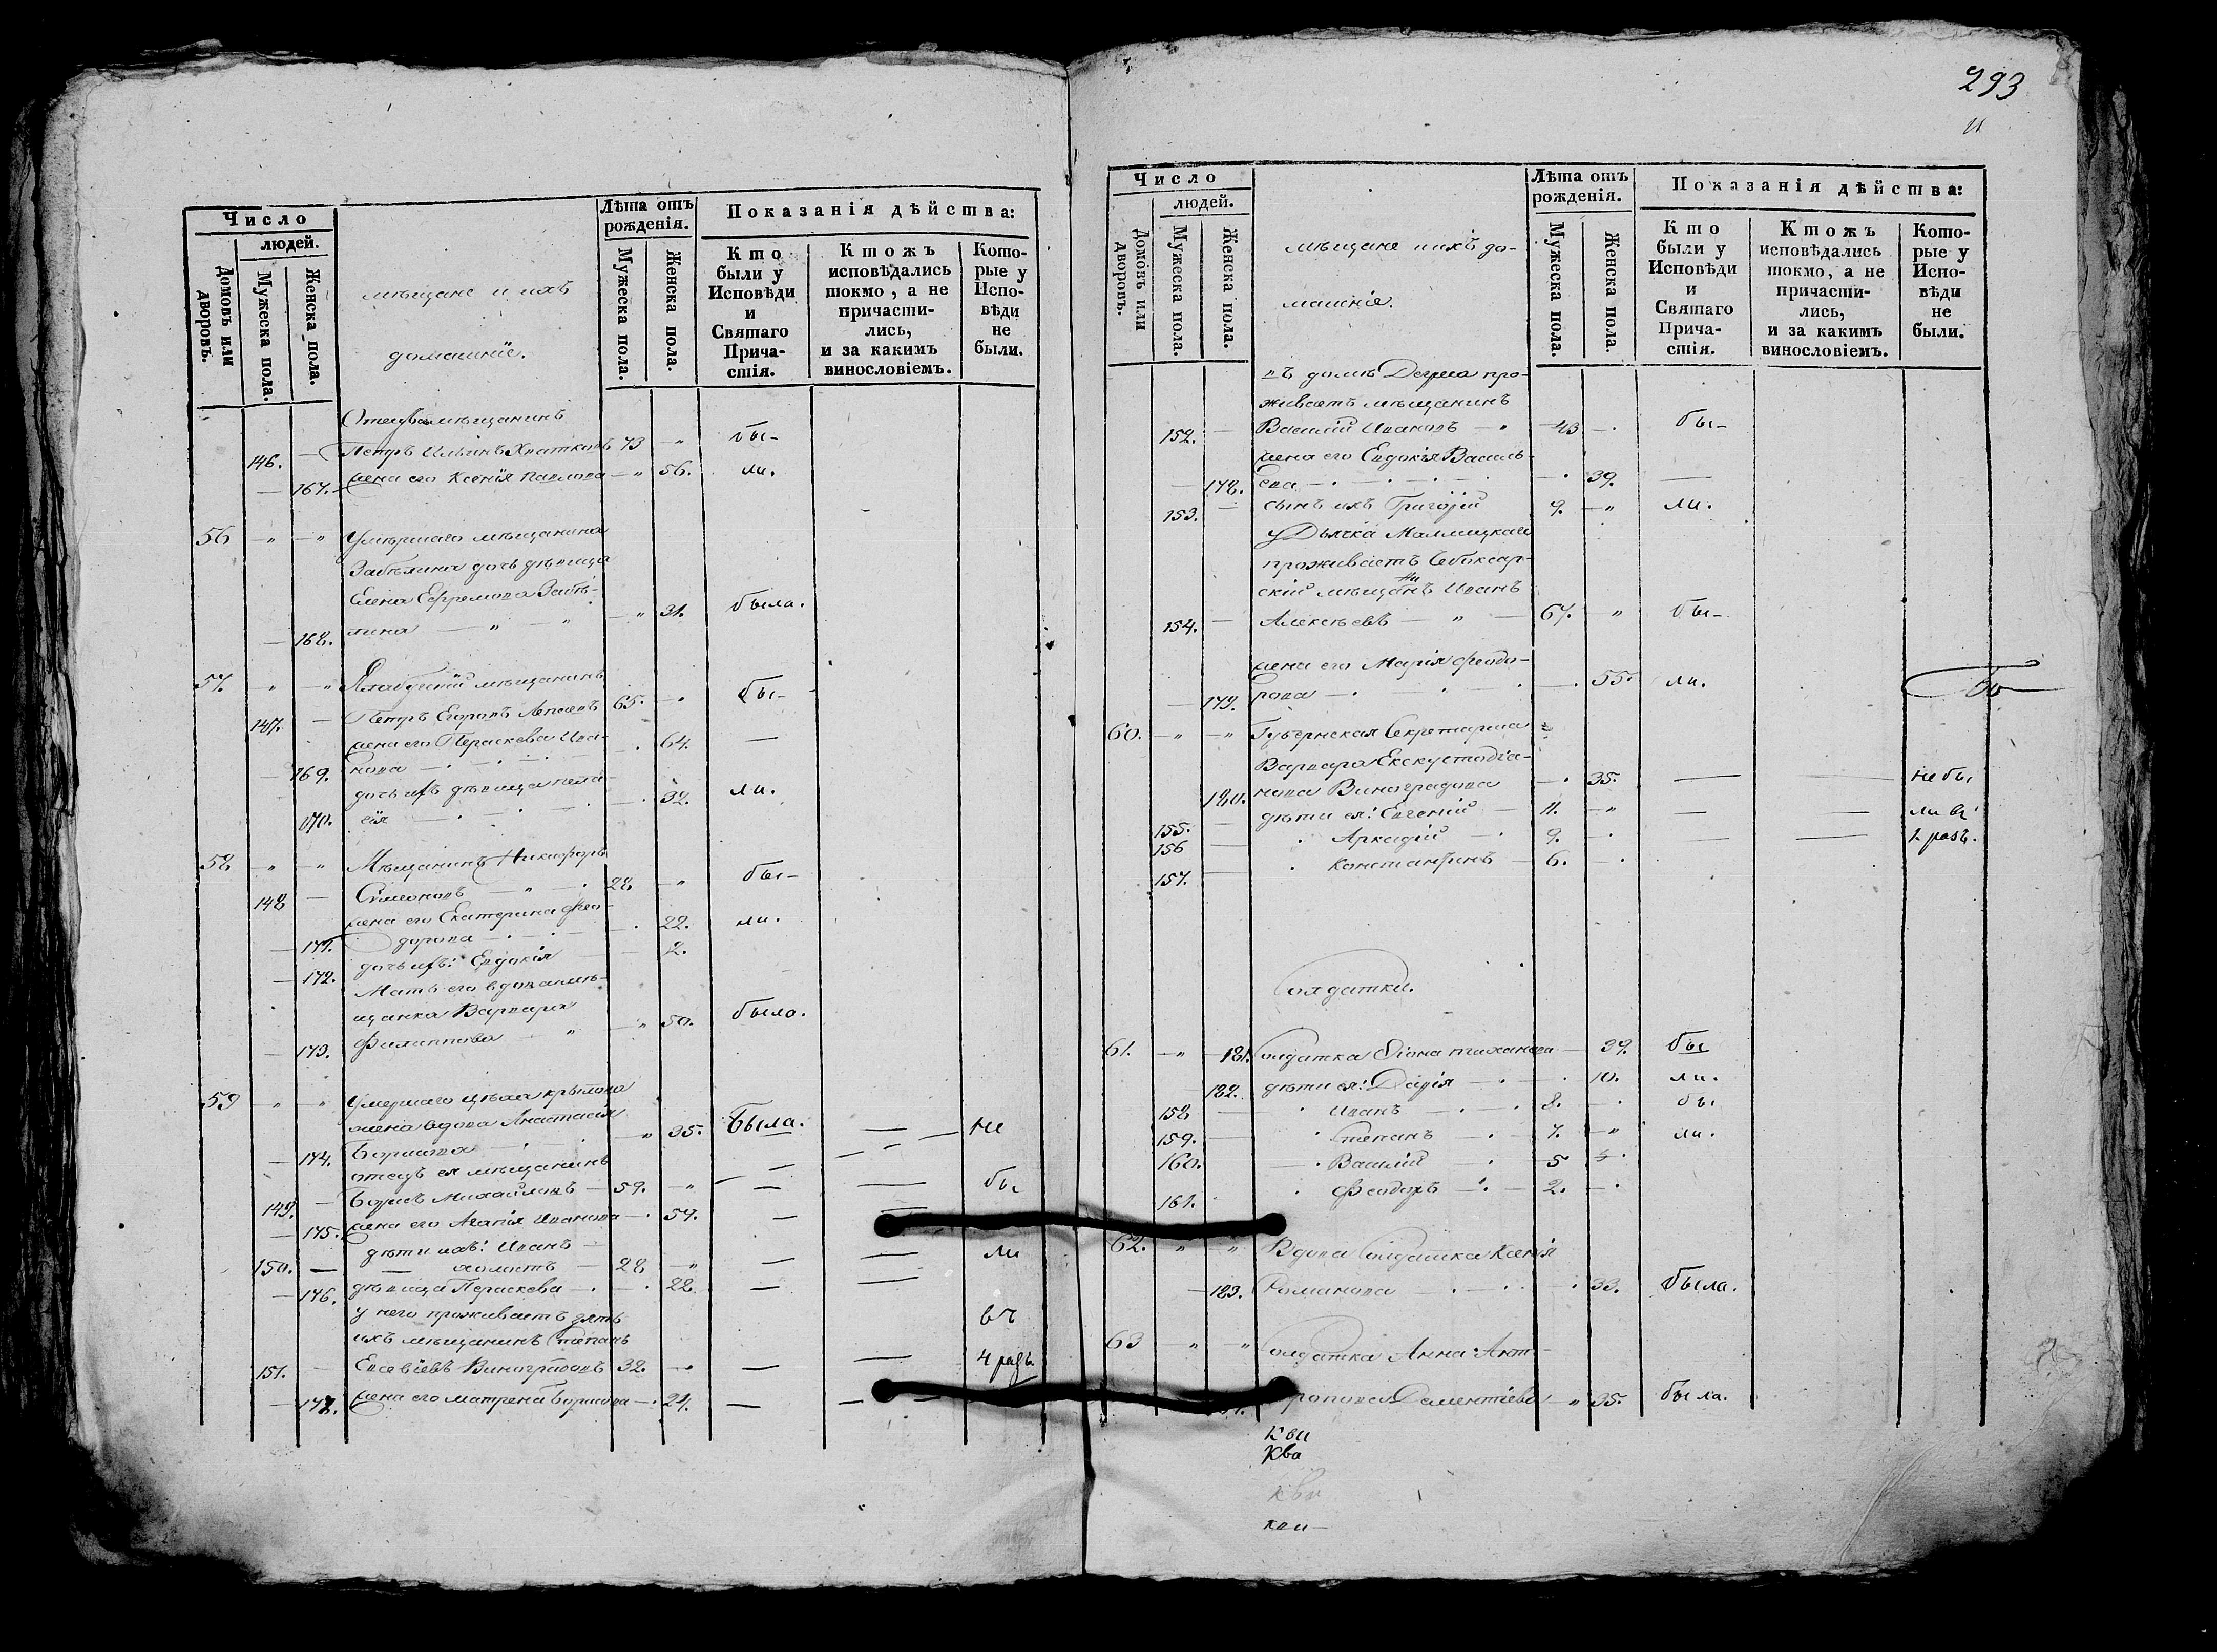 Число
людей.
Домовъ или дворовъ.
Мужеска пола.
Женска пола.
мѣщане и ихъ
домашніе.
Лѣта отъ рожденія.
Мужеска пола.
Женска пола.
Показанія дѣйства:
Кто были у Исповѣди и Святаго Причастія.
Ктожъ исповѣдались токмо, а не причастились, и за какимъ винословіемъ.
Которые у Исповѣди не были.
мѣщанинъ
146. — Петръ Ильинъ 73 — " бы-
— 167. жена его Ксенія Павлова — " 56. ли.
56 — " — " Умершаго мѣщанина
Забѣлина дочь дѣвица
Елена Ефремова Забѣ-
— 168. лина — " — " — " 31. была.
57. — " — " мѣщанинъ
147. — Петръ Егоровъ 65. — " бы-
жена его Параскева Ива- — . 64. —
— 169. нова
дочь ихъ дѣвица Пела- — . 32. ли.
170. гія
58 — " — " Мѣщанинъ Никифоръ
148 — Симоновъ — " — . 28 — " бы-
жена его Екатерина Фео- — . 22. ли.
— 171. дорова
— 172. дочь ихъ: Евдокія — 2.
Мать его вдова мѣ-
щанка Варвара — " 50. была.
— 173. Филиппова — "
59 — " — " Умершаго
жена вдова Анастасія — " 35. Была. — — не
— 174. Борисова
отецъ ея мѣщанинъ
149. — Борисъ Михайловъ — 59. — " — — бы
— 175. жена его Агапія Иванова — . 54. — —
дѣти ихъ: Иванъ — ли
150. — — холостъ — 28 — " — —
— 176. дѣвица Параскева — . — . 22. — —
у него проживаетъ зять въ
ихъ мѣщанинъ Степанъ
151. — Евсевіевъ Виноградовъ 32. — — — 4 разъ.
— 177. жена его Матрена Борисова — . 24. — —
293
Число
людей.
Домовъ или дворовъ.
Мужеска пола.
Женска пола.
мѣщане и ихъ до-
машніе.
Лѣта отъ рожденія.
Мужеска пола.
Женска пола.
Показанія дѣйства:
Кто были у Исповѣди и Святаго Причастія.
Ктожъ исповѣдались токмо, а не причастились, и за какимъ винословіемъ.
Которые у Исповѣди не были.
въ домѣ про-
живаетъ мѣщанинъ
152. — Василій Ивановъ — " 43 — . бы-
жена его Евдокія Василь-
— 178. ева — . 39. —
153. — сынъ ихъ Григорій 9. — " ли.
у Дьячка
проживаетъ Чебоксар-
скій мѣщанинъ Иванъ
154. — Алексѣевъ — " — 67. " бы-
жена его Марія Феодо-
— 179. рова — . 55. ли.
60. — " — " Губернская Секретарша
Варвара
180. нова Виноградова — . 35. — — не бы
155. — дѣти ея: Евгеній — 11. — " — — ли въ
156 — . Аркадій — . 9. — . — — 1. разъ.
157. — . Константинъ — 6. — .
Солдатки.
61. — " — 181. Солдатка — 39. бы
182. дѣти ея: Дарія — . — . 10. ли.
158 — . Иванъ — . — . 8. — . бы
159. — . Степанъ — . — 7. — " ли.
160. — . Василій — . — 5 — .
161. . Феодоръ — . — 2. — .
62. " " Вдова Солдатка Ксенія
— 183. Романова — . 33. была.
63 — " — " Солдатка Анна
Дементіева — " 35. была.
кви
Ква
кви
кви —